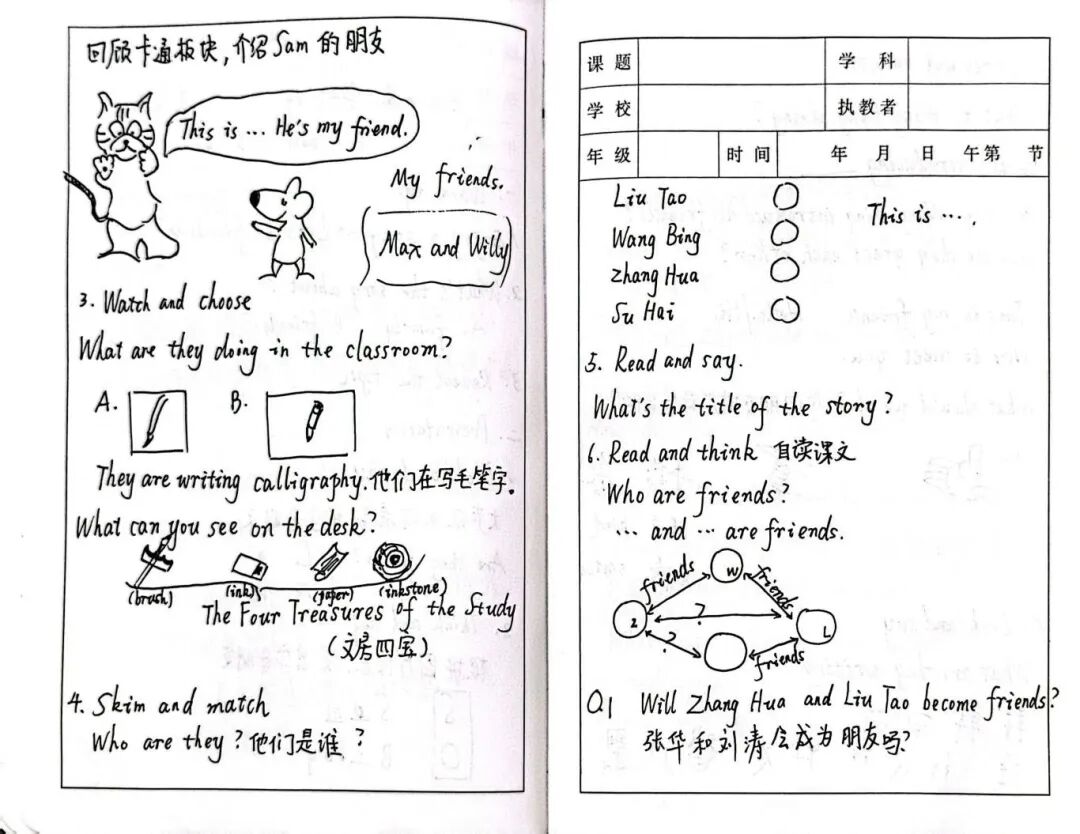 回顾卡通板块,介绍Sam的朋友
This is ... He's my friend.
My friends.
Max and Willy
3. Watch and choose
What are they doing in the classroom?
A. B.
They are writing calligraphy.他们在写毛笔字。
What can you see on the desk?
(brush) (ink) (paper) (inkstone)
The Four Treasures of the Study
(文房四宝)
4. Skim and match
Who are they?他们是谁?
课题 学科
学校 执教者
年级 时间 年 月 日 午第 节
Liu Tao
Wang Bing
Zhang Hua
Su Hai
This is ....
5. Read and say.
What's the title of the story?
6. Read and think 自读课文
Who are friends?
... and ... are friends.
friends W friends
Z ? L
? friends
Q1 Will Zhang Hua and Liu Tao become friends?
张华和刘涛会成为朋友吗?